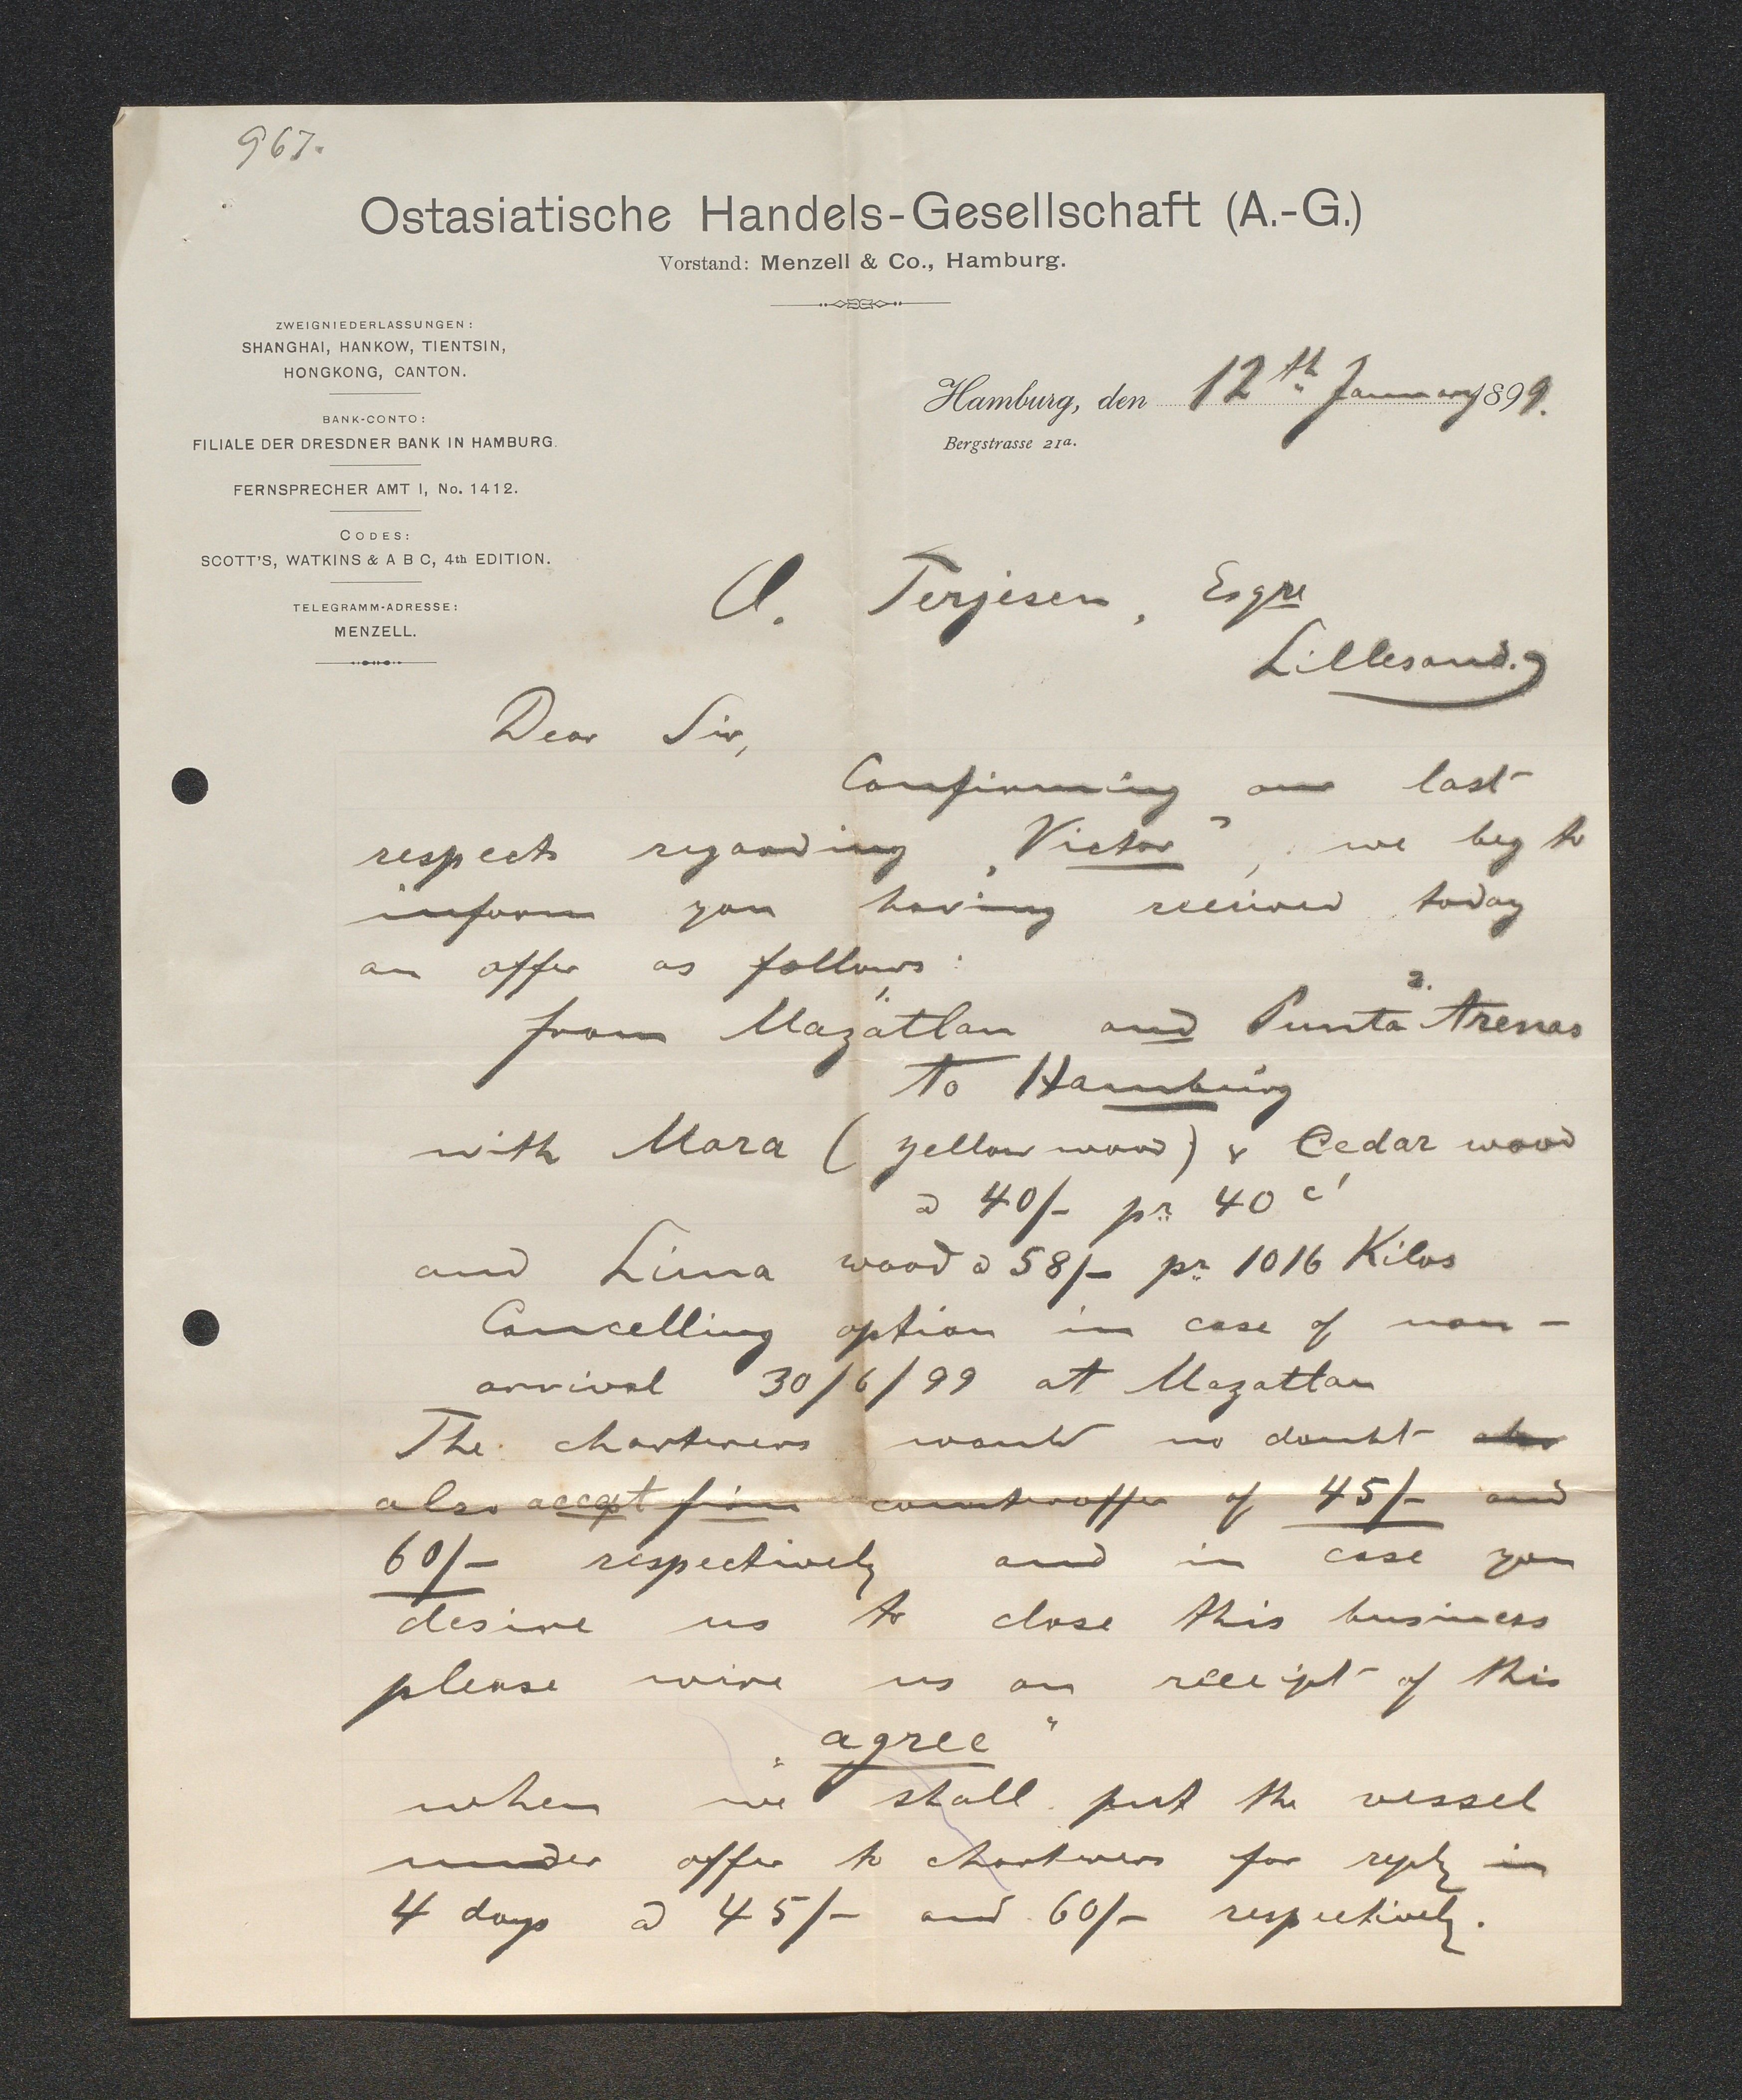 967.
Ostasiatische Handels-Gesellschaft (A.-G.)
Vorstand: Menzell & Co., Hamburg.
ZWEIGNIEDERLASSUNGEN:
SHANGHAI, HANKOW, TIENTSIN,
HONGKONG, CANTON.
BANK-CONTO:
FILIALE DER DRESDNER BANK IN HAMBURG.
FERNSPRECHER AMT I, No. 1412.
CODES:
SCOTT'S, WATKINS & A B C, 4th EDITION.
TELEGRAMM-ADRESSE:
MENZELL.
Hamburg, den 12th January 1899.
Bergstrasse 21a.
O. Terjesen, Esqre
Lillesand.
Dear Sir,
Confirming our last
respects regarding "Victor", we beg to
inform you having received today
an offer as follows:
from Mazatlan and Punta Arenas
to Hamburg
with Mora (yellow wood) & Cedar wood
a 40/- pr. 40 c'
and Lima wood a 58/- pr. 1016 Kilos
Cancelling option in case of non-
arrival 30/6/99 at Mazatlan
The charterers would no doubt also
also accept firm counteroffer of 45/- and
60/- respectively and in case you
desire us to close this business
please wire us on receipt of this
"agree"
when we shall put the vessel
under offer to charterers for reply in
4 days a 45/- and 60/- respectively.